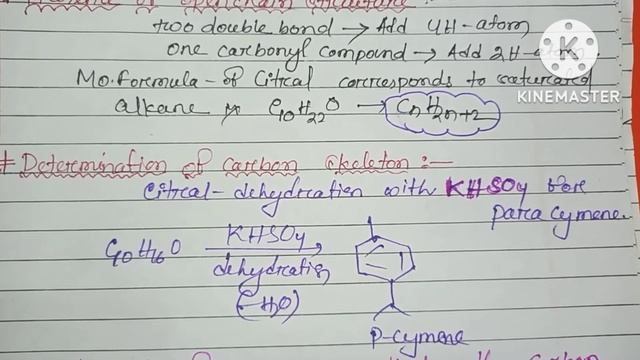 of openchain structure
two double bond → Add 4H-atom
one carbonyl compound → Add 2H-atom
Mo.Formula - of Citral corresponds to saturated
alkane C10H22O → CnH2n+2
KINEMASTER
# Determination of carbon skeleton :-
Citral - dehydration with KHSO4 
para cymene.
C10H16O KHSO4
dehydration
(-H2O)
p-cymene